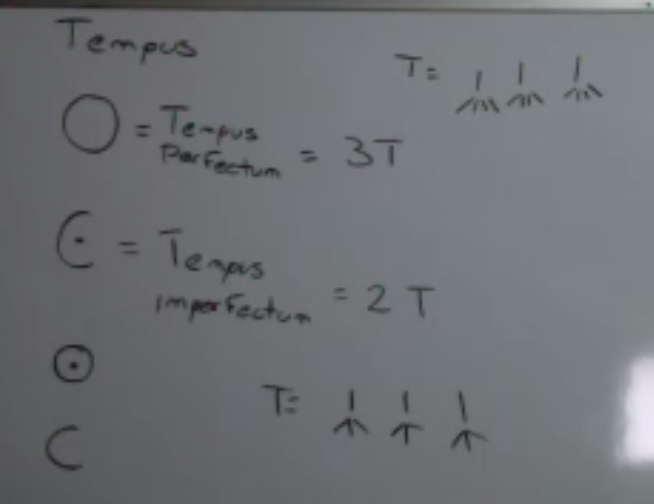 Tempus
T =
O = Tempus
Perfectum = 3T
C = Tempus
imperfectum = 2T
T =
C